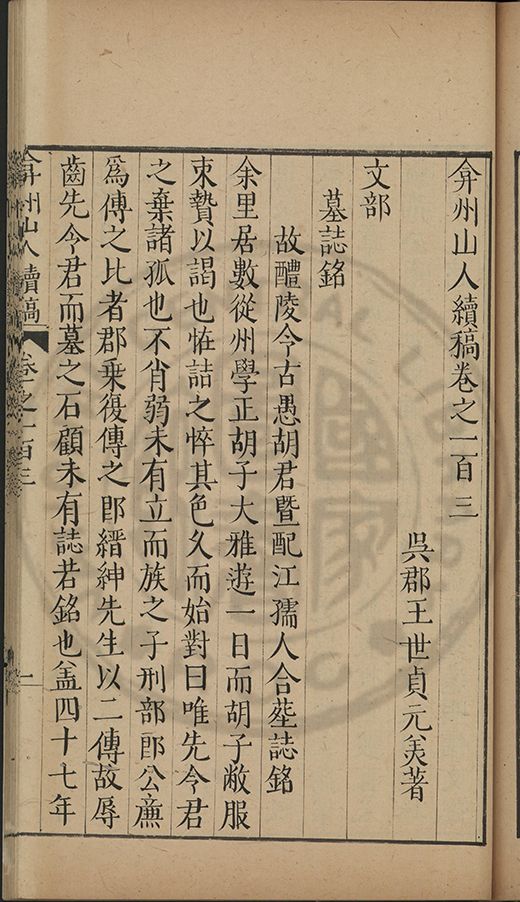 弇州山人續稿卷之一百三
吳郡王世貞元美著
文部
墓誌銘
故醴陵令古愚胡君暨配江孺人合塟誌銘
余里居數從州學正胡子大雅遊一日而胡子敝服
束贄以謁也恠詰之悴其色久而始對曰唯先令君
之棄諸孤也不肖弱未有立而族之子刑部郎公廉
爲傳之比者郡乗復傳之即縉紳先生以二傳故辱
齒先令君而墓之石顧未有誌若銘也盖四十七年
弇州山人續稿 卷之一百三 一